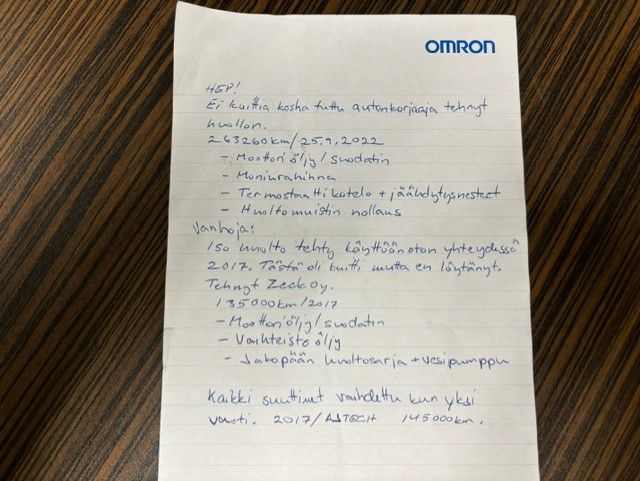 OMRON
HEP!
Ei kuittia koska tuttu autonkorjaaja tehnyt
huollon.
263260km/25.9.2022
- Moottoriöljy/suodatin
- Moniurahihna
- Termostaattikotelo + jäähdytysnesteet
- Huoltomuistin nollaus
Vanhoja:
Iso huolto tehty käyttöönoton yhteydessä
2017. Tästä oli kuitti mutta en löytänyt.
Tehnyt Zeck Oy.
135000km/2017
- Moottoriöljy/suodatin
- Vaihteisto öljy
- Jakopään huoltosarja + vesipumppu
Kaikki suuttimet vaihdettu kun yksi
vuoti. 2017/ASTECH 145000km.